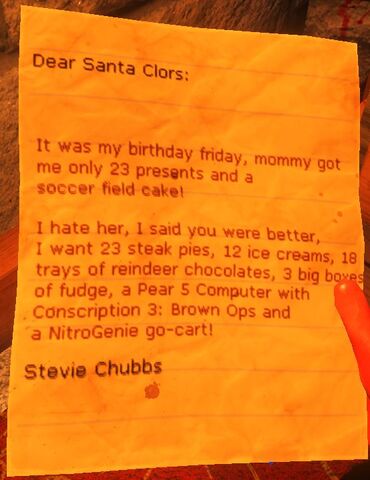 Dear Santa Clors:
It was my birthday friday, mommy got
me only 23 presents and a
soccer field cake!
I hate her, I said you were better,
I want 23 steak pies, 12 ice creams, 18
trays of reindeer chocolates, 3 big boxes
of fudge, a Pear 5 Computer with
Conscription 3: Brown Ops and
a NitroGenie go-cart!
Stevie Chubbs